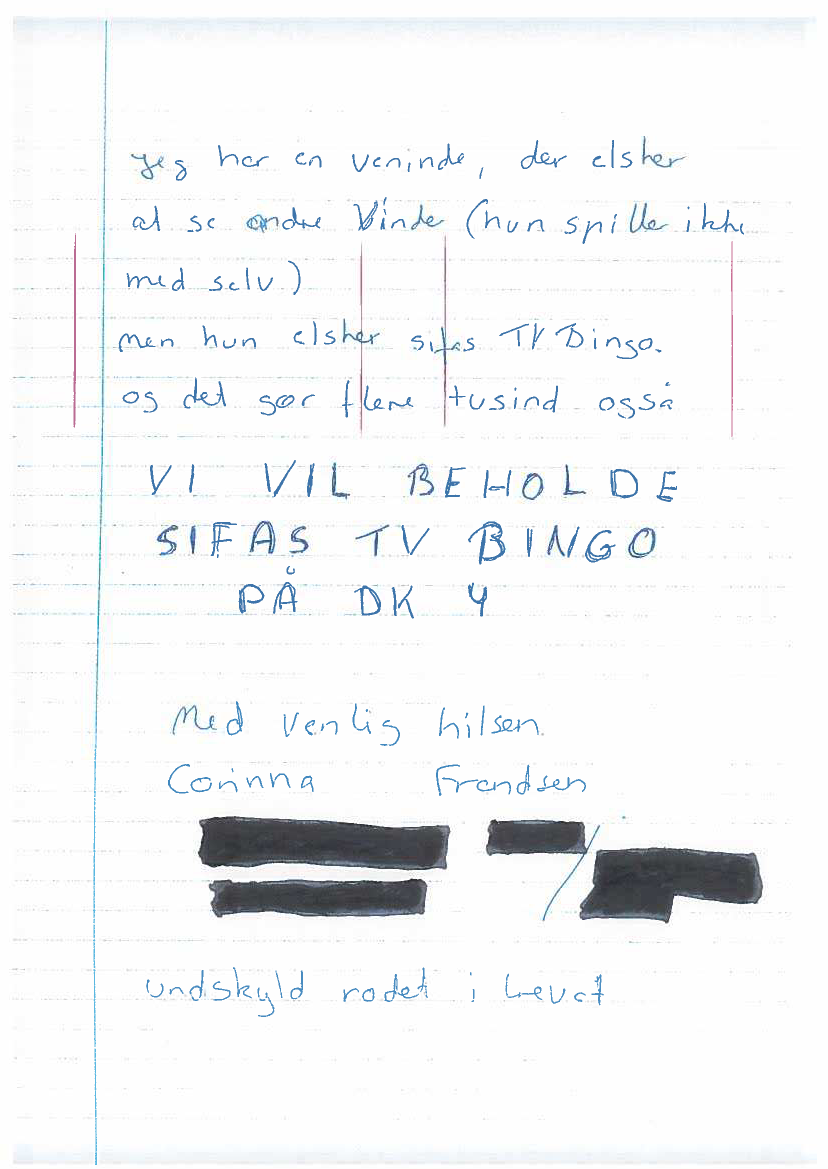 Jeg har en veninde, der elsker
at se andre Vinde (hun spille ikke
med selv.)
men hun elsker sifas TV Bingo.
og det gør flere tusind også
VI VIL BEHOLDE
SIFAS TV BINGO
PÅ DK 4
Med venlig hilsen.
Corinna Frandsen
undskyld rodet i brevet